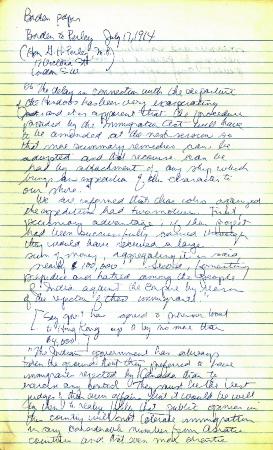 Borden papers
Borden to Perley July 17, 1914
(Hon. G. H. Perley, M.P.
17 Victoria St
London S.W.
the delay in connection with the departure
of the Hindoos has been very exasperating
and it is apparent that the procedure
provided by the Immigration Act will have
to be amended at the next session so
that more summary remedies can be
adopted and that recourse can be
had by attachment of any ship which
brings an expedition of this character to
our shore.
We are informed that those who arranged
the expedition had two motives. First
pecuniary advantage, if their project
had been successfully carried through
they would have received a large
sum of money, aggregating it is said
nearly $100,000. Second, fomenting
prejudice and hatred among the people
of India against the Empire by reason
of the rejection of these immigrants.
gov't has agreed to provision boat
to Hong Kong up to by no more than
$4,000
The Indian government has always
taken the ground that they preferred to have
immigrants rejected by Canada than to
exercise any control. They must be the best
judges of their own affairs but it would be well
for them to realize that public opinion in
this country will not tolerate immigration
in any considerable numbers from Asiatic
countries and not even most